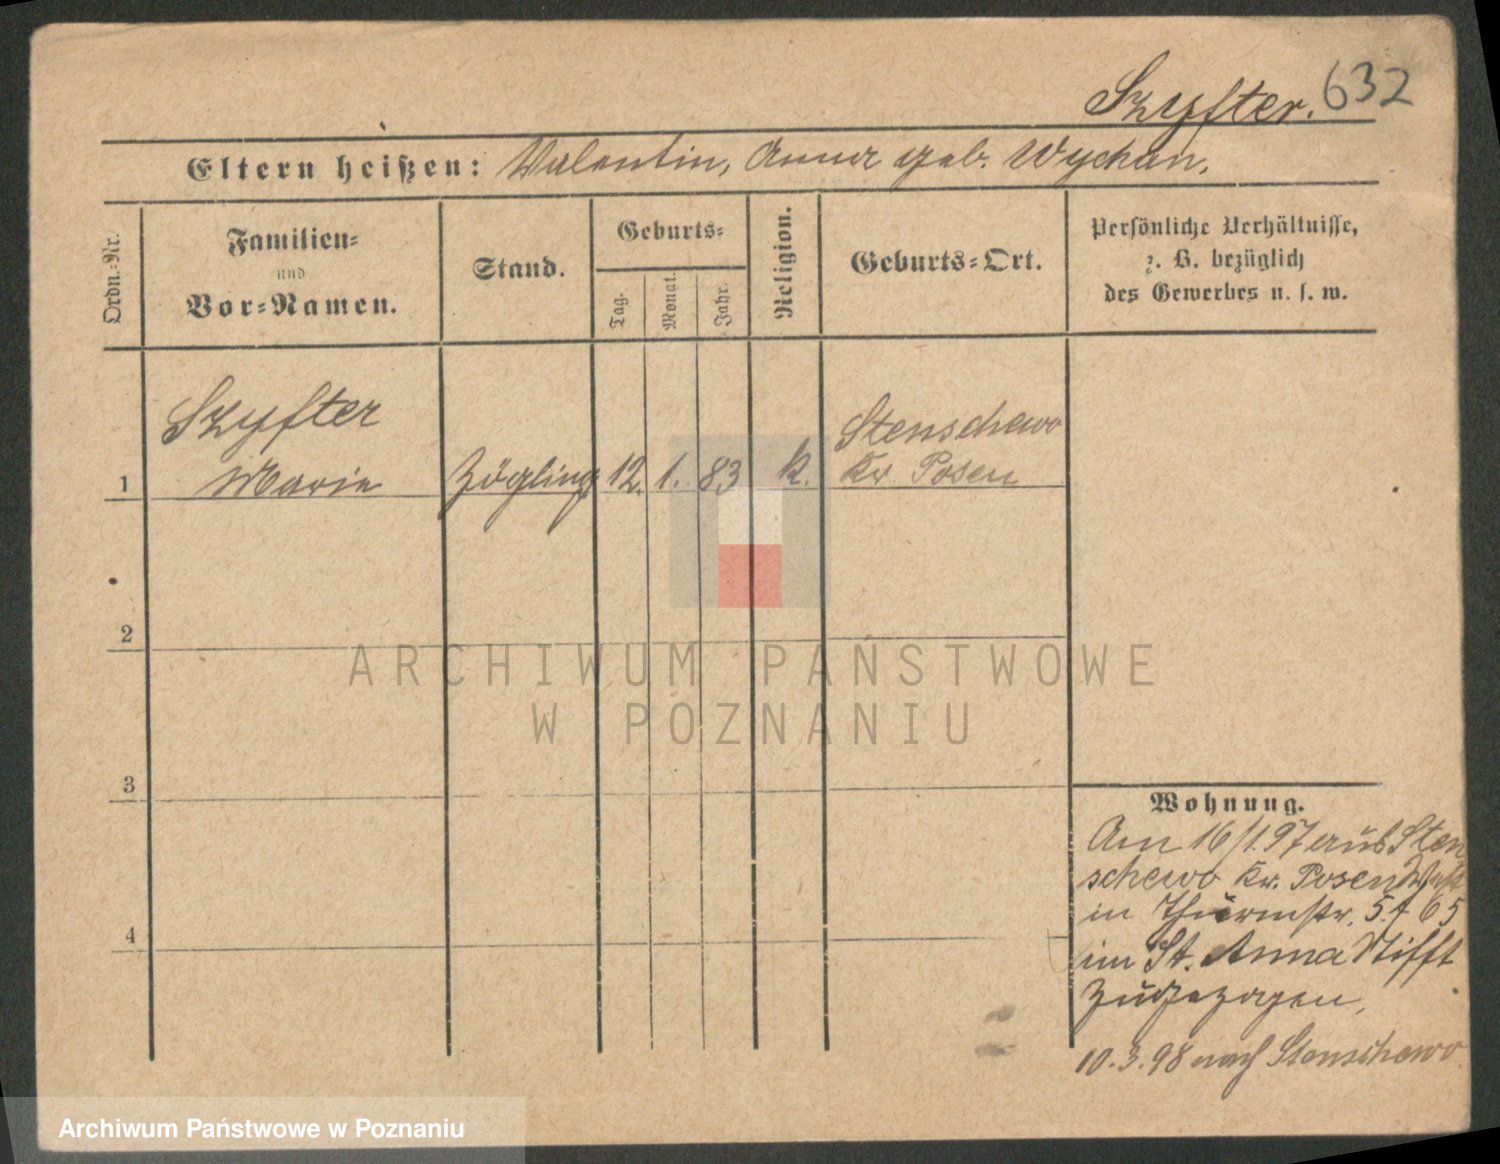 Szyfter. 632
Eltern heißen: Valentin, Anna geb. Wychan.
Ordn.-Nr.
Familien-
und
Vor-Namen.
Stand.
Geburts-
Tag.
Monat.
Jahr.
Religion.
Geburts-Ort.
Persönliche Verhältnisse,
z. B. bezüglich
des Gewerbes u. s. w.
Szyfter
Marie
1
Zögling
12. 1. 83
k.
Stenschewo
Kr Posen
2
3
4
Wohnung.
Am 16/1.97 aus Sten
schewo Kr. Posen West
in Thurmstr. 5.
im St. Anna Stifft
zugezogen,
10.3.98 nach Stenschewo
ARCHIWUM PAŃSTWOWE
W POZNANIU
Archiwum Państwowe w Poznaniu